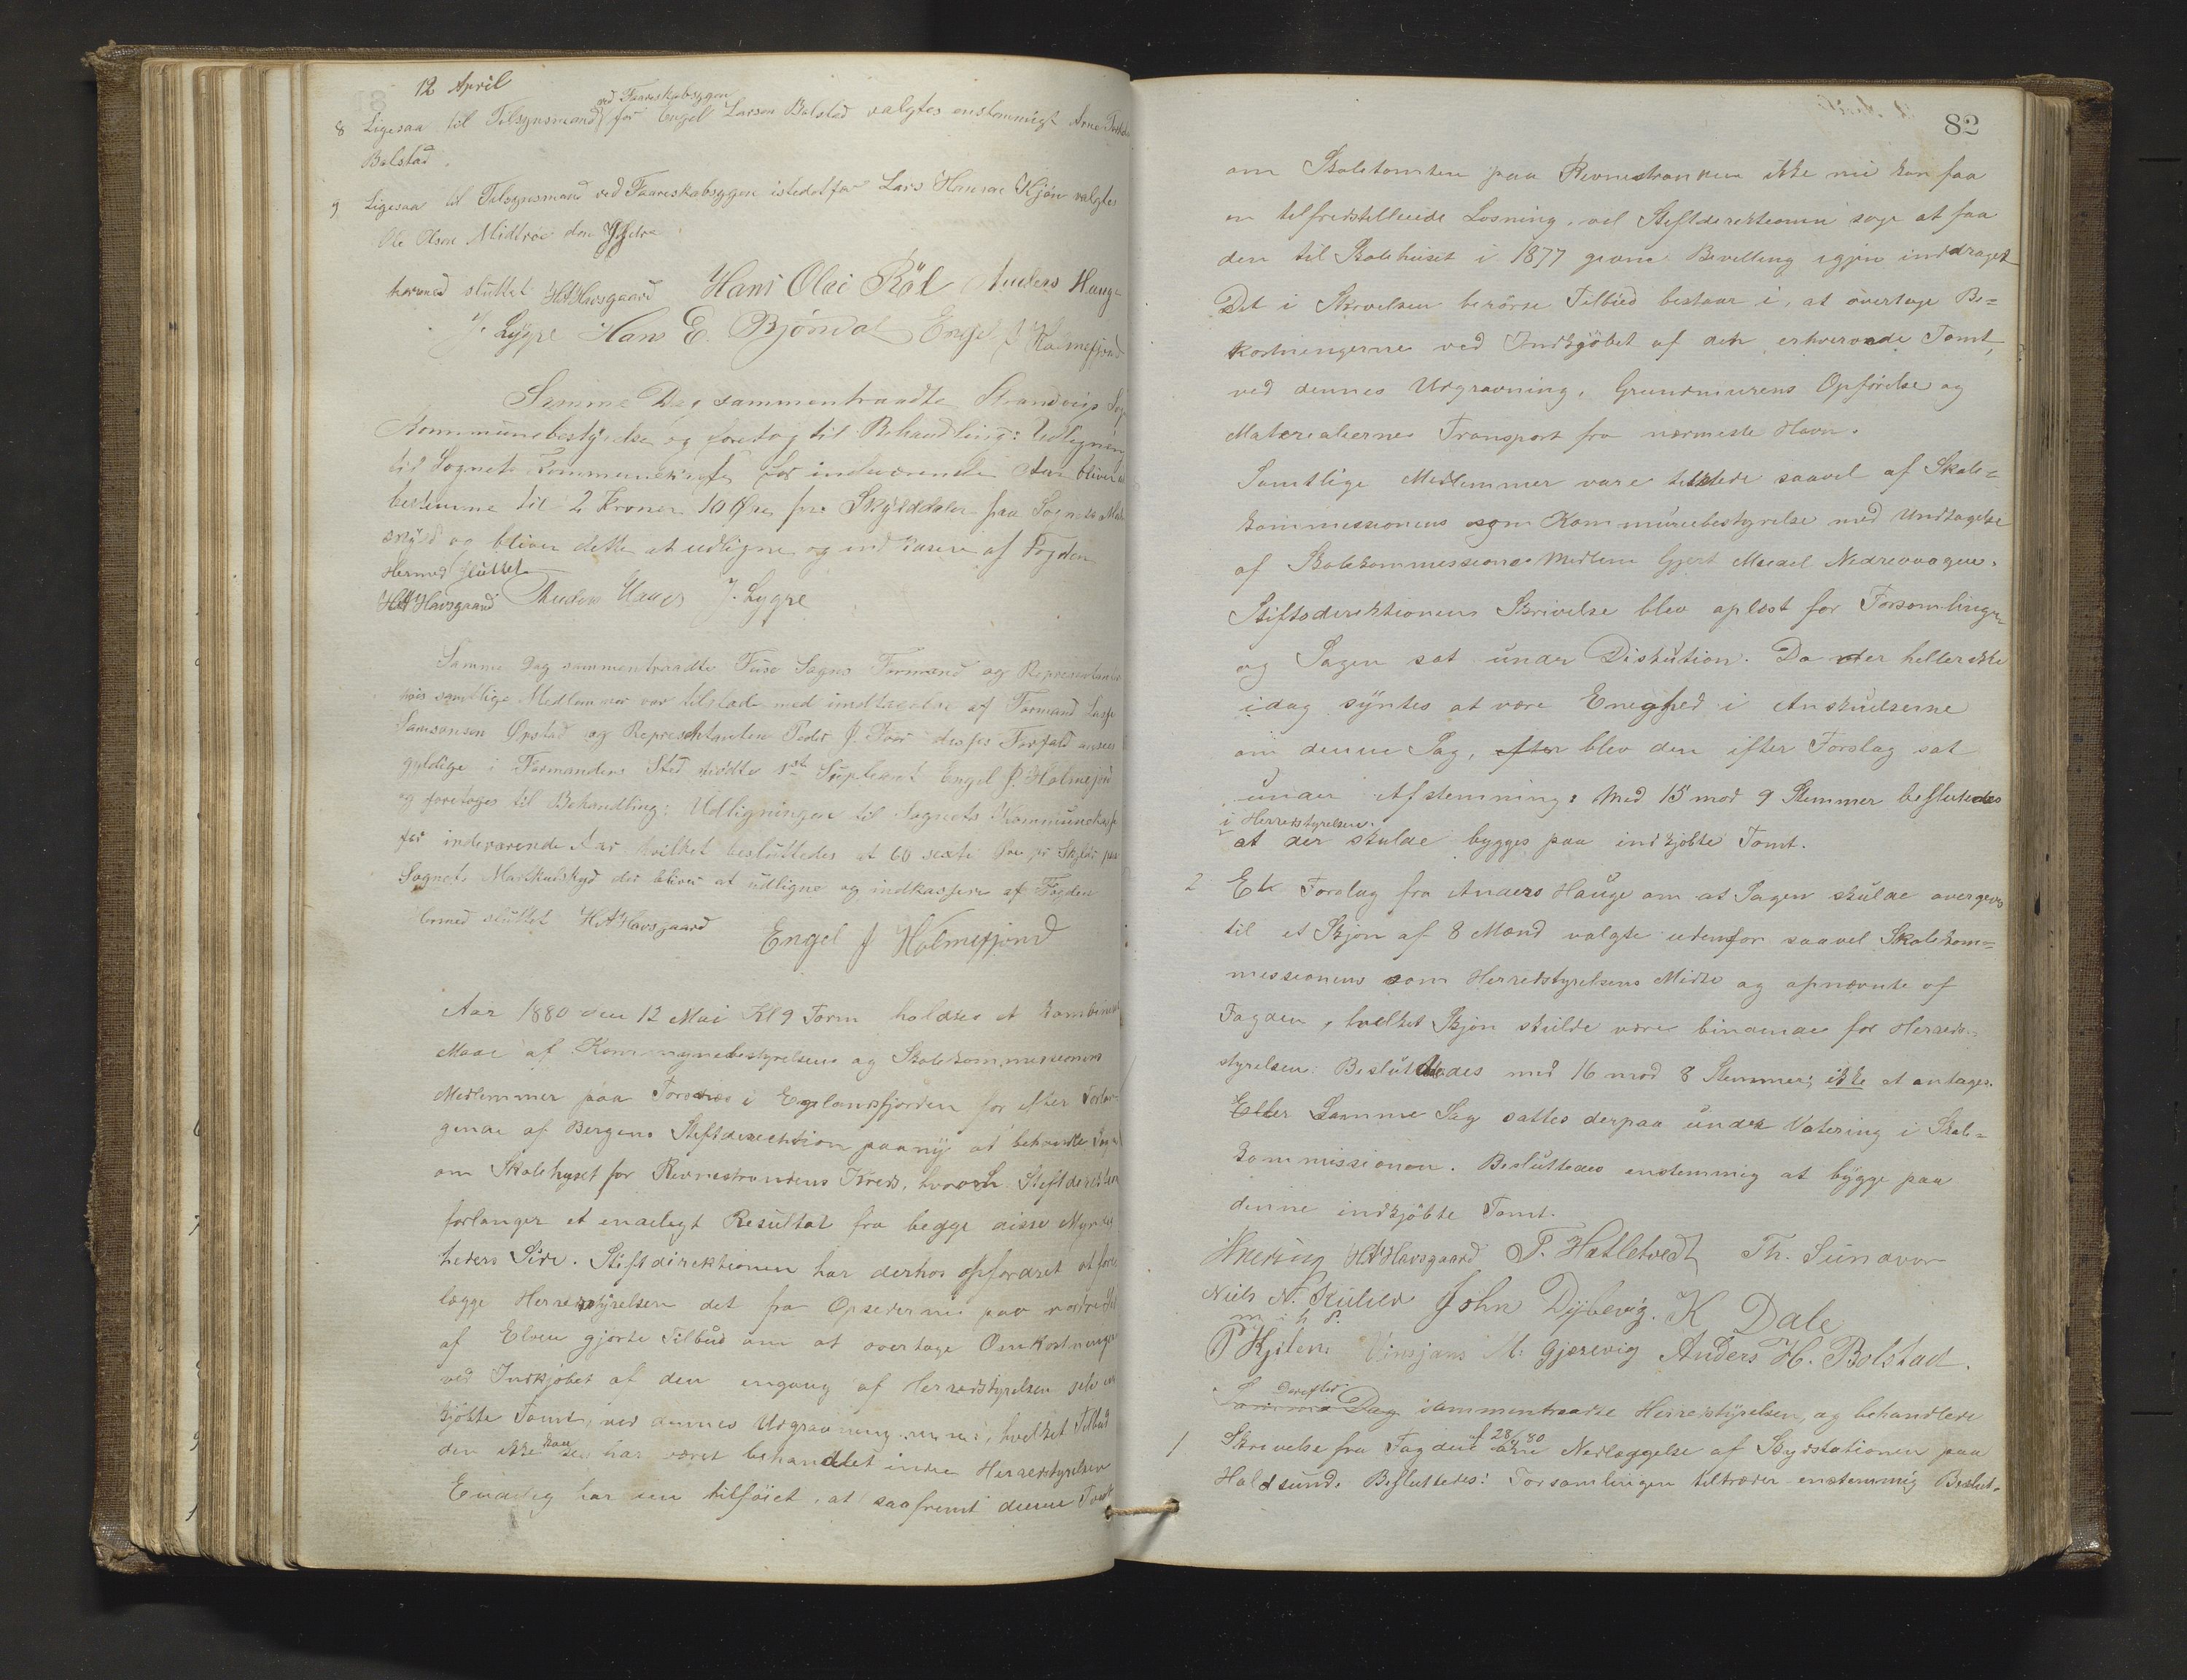 12 April
ved Faareskabsygen
8 Ligesaa til Tilsynsmand for Engel Larsen Bolstad valgtes enstemmigt Arne
Bolstad.
9 Ligesaa til Tilsynsmand ved Faareskabsygen istedetfor Lars Hansen valgtes
Ole Olsen Midtræe den Yngre
hermed sluttet HAHavsgaard Hans Olai Röl Anders Hauge
J. Lygre Hans E. Bjöndal Engel J Holmefjord
Samme Dag sammentraadte Strandvigs Sogns
Kommunebestyrelse og foretog til Behandling: Udligning
til Sognets Kommunekasse for indeværende Aar bliver at
bestemme til 2 Kroner 10 Øre pr. Skylddaler paa Sognets Matr.
skyld og bliver dette at udligne og indkasere af Fogden
Hermed sluttet
HAHavsgaard Anders Hauge J. Lygre
Samme Dag sammentraadte Fuse Sogns Formænd og Repræsentanter
hvis samtlige Medlemmer var tilstæde med undtagelse af Formand Lasse
Samsonsen Opstad og Repræsentanten Peder J. disses Forfald ansees
gyldige i Formandens Sted mødte 1ste Supleant Engel J. Holmefjord
og foretoges til Behandling: Udligningen til Sognets Kommunekasse
for indeværende Aar hvilket besluttedes at 60 sexti Øre pr Skyldr paa
Sognets Matrikulskyld der bliver at udligne og indkassere af Fogden
Hermed sluttet HAHavsgaard
Engel J Holmefjord
Aar 1880 den 12 Mai Kl 9 Form holdtes et kombineret
Møde af Kommunebestyrelsens og Skolekommissionens
Medlemmer paa i Egelandsfjorden for efter Forlan-
gende af Bergens Stiftsdirektion paany at behandle Sagen
om Skolehuset for Revnestrandens Kreds, hvorom Stiftsdirektionen
forlanger et endeligt Resultat fra begge disse Myndig
heders Side. Stiftsdirektionen har derhos opfordret at fore
lægge Herredstyrelsen det fra Opsiderne paa nordre Side
af Elven gjorte Tilbud om at overtage Omkostningerne
ved Indkjøbet af den engang af Herredstyrelsen selv ind
kjøbte Tomt, ved dennes Udgravning m. m., hvilket Tilbud
den ikke kan se har været behandlet inden Herredstyrelsen
Endelig har den tilføiet, at saafremt denne Tvist
82
om Skoletomten paa Revnestranden ikke nu kan faa
en tilfredstillende Løsning, vil Stiftsdirektionen søge at faa
den til Skolehuset i 1877 givne Bevilling igjen inddraget
Det i Skrivelsen berörte Tilbud bestaar i, at overtage Be=
kostningerne ved Indkjöbet af den erhvervede Tomt,
ved dennes Udgravning, Grundmurens Opförelse og
Materialiernes Transport fra nærmeste Havn.
Samtlige Medlemmer vare tilstede saavel af Skole=
kommissionens som Kommunebestyrelse med Undtagelse
af Skolekommissions Medlem Gjert Nedrevaagen.
Stiftsdirektionens Skrivelse blev oplæst for Forsamlingen
og Sagen sat under Diskution. Da der heller ikke
idag syntes at være Enighed i Anskuelserne
om denne Sag, efter blev den efter Forslag sat
under Afstemning: Med 15 mod 9 Stemmer besluttedes
i Herredstyrelsen
at der skulde bygges paa indkjöbte Tomt.
2 Et Forslag fra Anders Hauge om at Sagen skulde overgives
til et Skjøn af 8 Mænd valgte udenfor saavel Skolekom=
missionens som Herredstyrelsens Midte og opnævnte af
Fogden, hvilket Skjøn skulde være bindende for Herreds-
styrelsen. Besluttedes med 16 mod 8 Stemmer, ikke at antages.
Efter Samme Sag sattes derpaa under Votering i Skole=
kommissionen. Besluttedes enstemmig at bygge paa
denne indkjöbte Tomt.
HAHavsgaard P. Hatletvedt Th. Sundvor
Niels N. John Dybevig. K Dale
m i h P.
M. Gjerevig Anders H. Bolstad.
Derefter
Samme Dag sammentraadte Herredstyrelsen, og behandlede
af 28/ 80
1. Skrivelse fra Fogden om Nedlæggelse af Skydsstationen paa
Holdsund. Besluttedes: Forsamlingen tiltræder enstemmig Beslut-